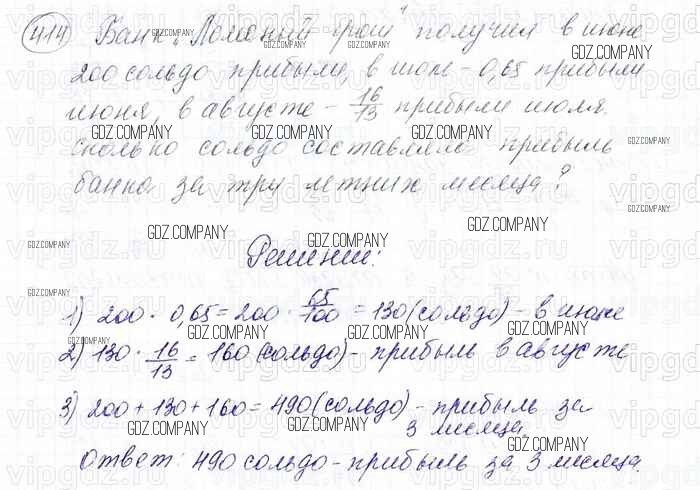 414 Банк „Ломаный грош" получил в июне
200 сольдо прибыли, в июле - 0,65 прибыли
июня, в августе - 16/13 прибыли июля.
Сколько сольдо составляла прибыль
банка за три летних месяца?
Решение:
1) 200 · 0,65 = 200 · 65/100 = 130 (сольдо) - в июле
2) 130 · 16/13 = 160 (сольдо) - прибыль в августе
3) 200 + 130 + 160 = 490 (сольдо) - прибыль за
3 месяца.
Ответ: 490 сольдо - прибыль за 3 месяца.